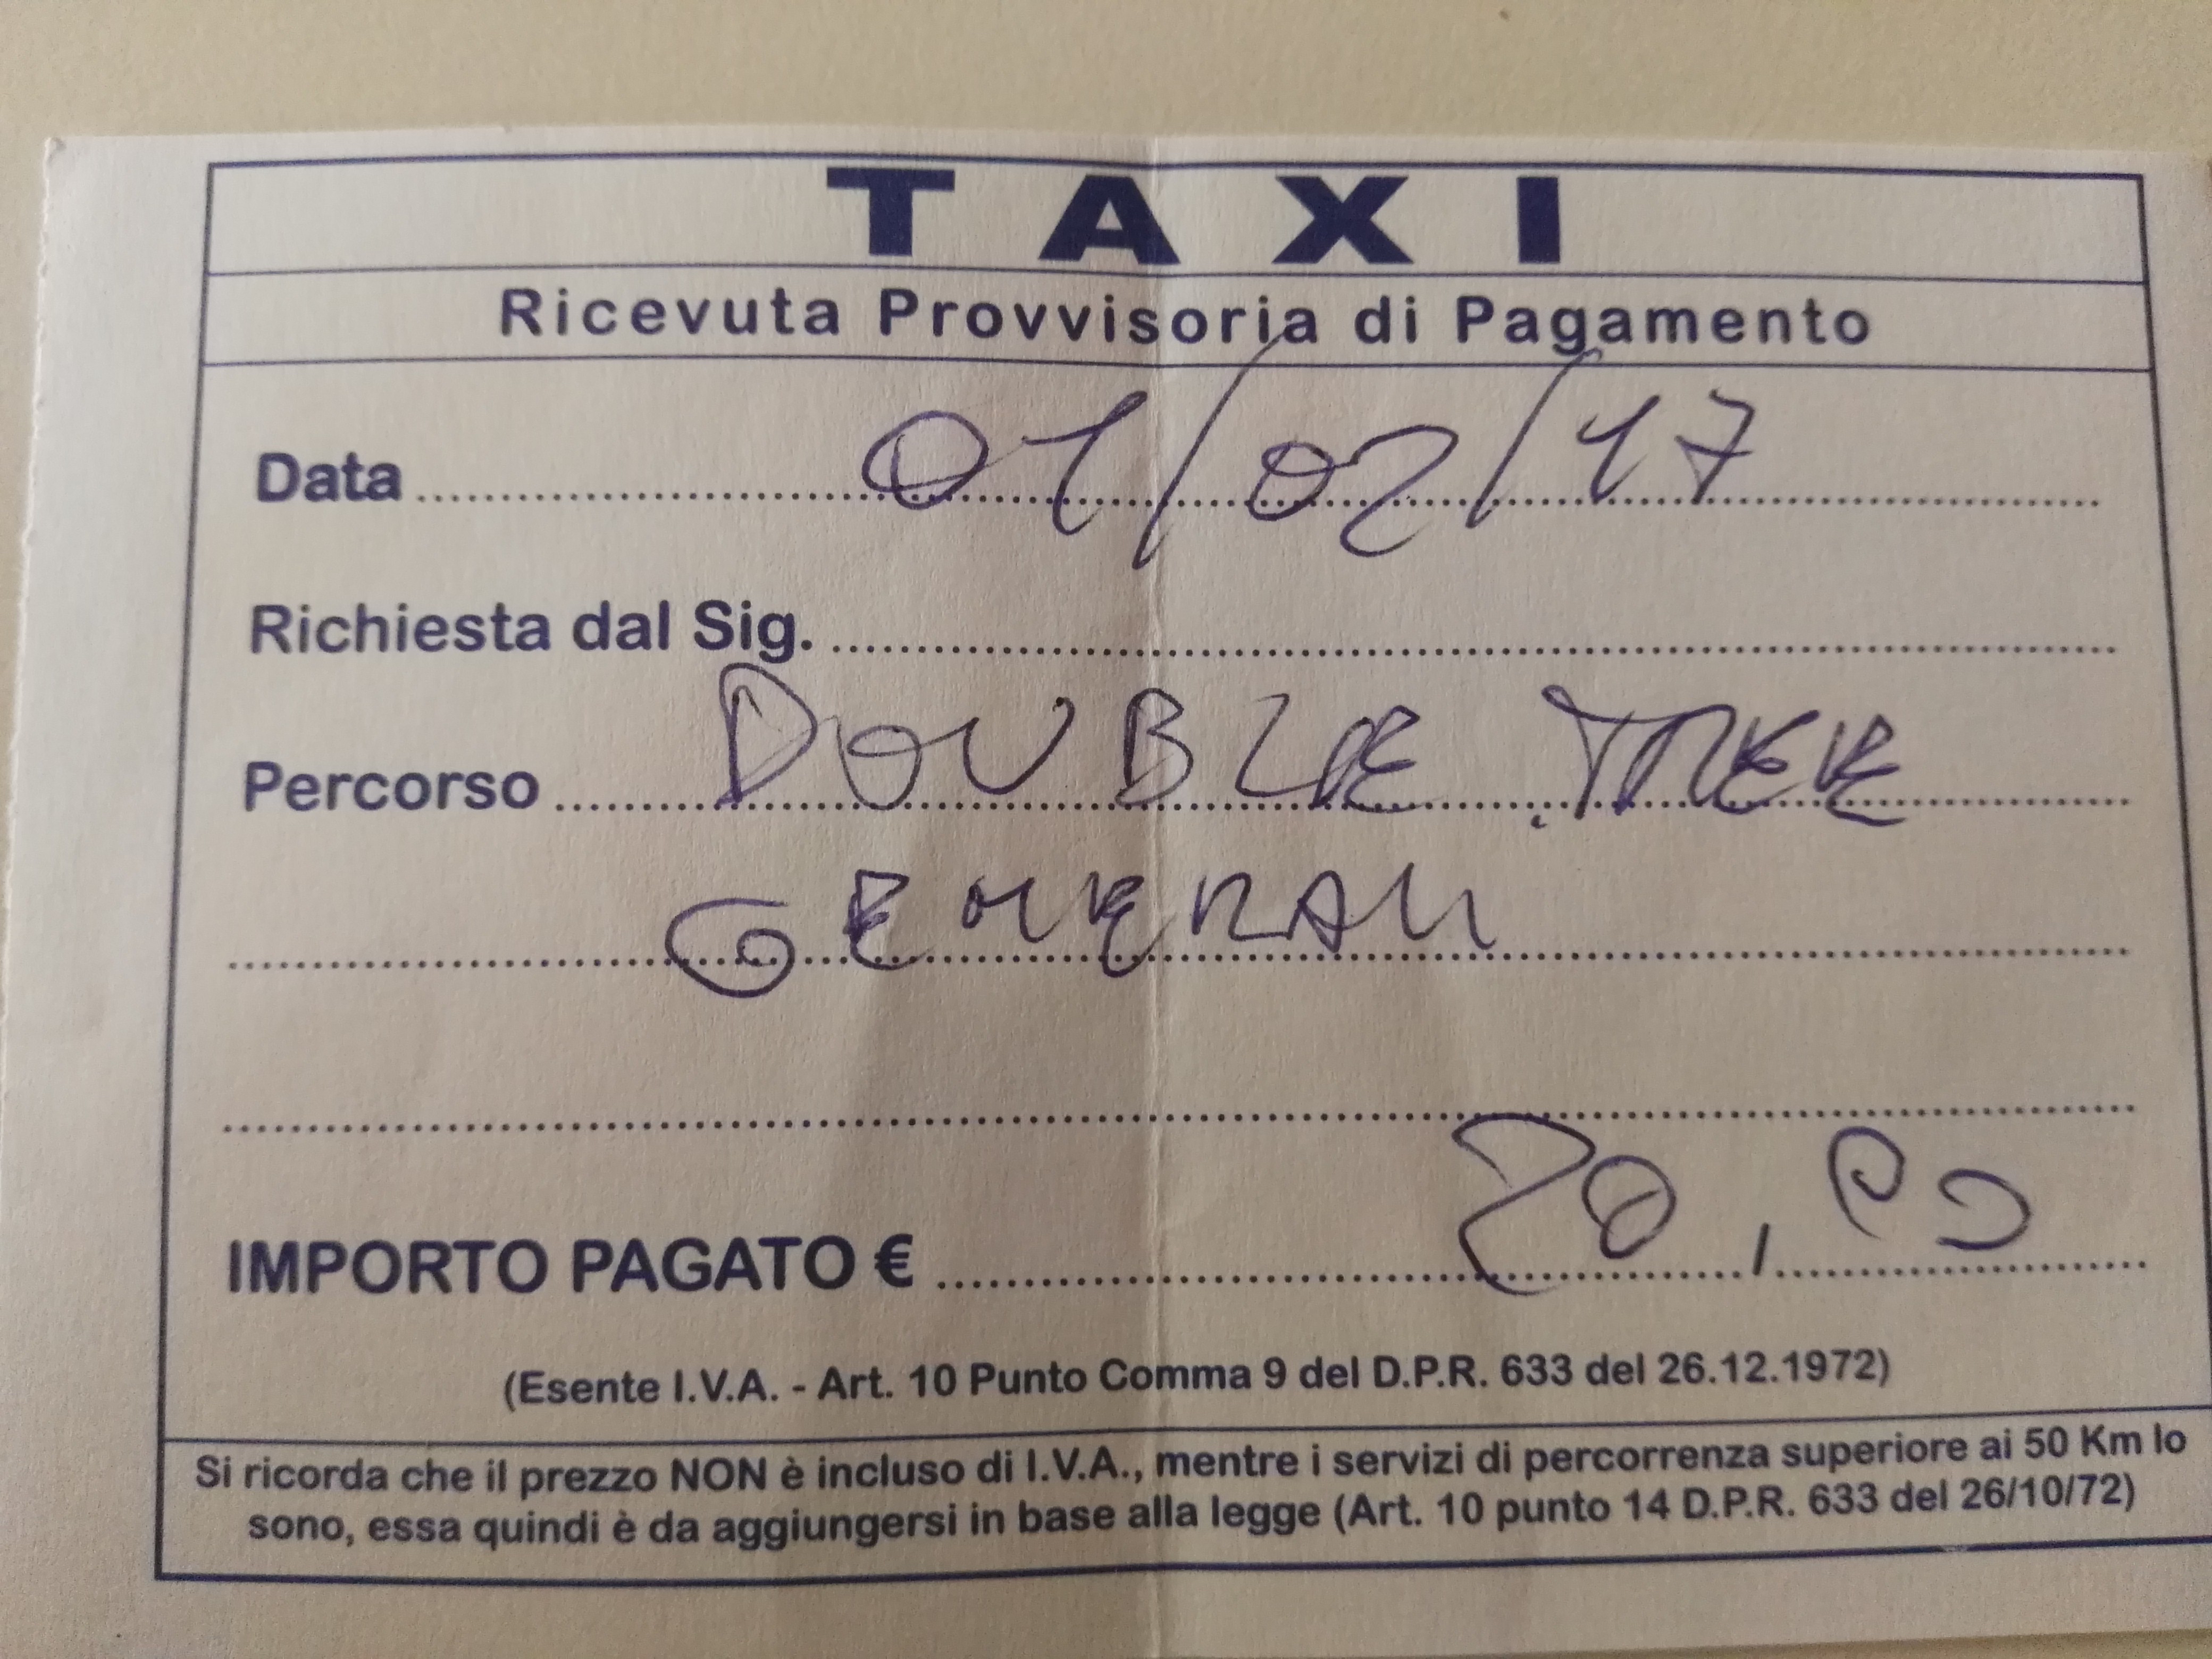 TAXI
Ricevuta Provvisoria di Pagamento
Data 01/02/17
Richiesta dal Sig.
Percorso DOUBLE TREE
GENERALI
IMPORTO PAGATO € 20,00
(Esente I.V.A. - Art. 10 Punto Comma 9 del D.P.R. 633 del 26.12.1972)
Si ricorda che il prezzo NON è incluso di I.V.A., mentre i servizi di percorrenza superiore ai 50 Km lo
sono, essa quindi è da aggiungersi in base alla legge (Art. 10 punto 14 D.P.R. 633 del 26/10/72)